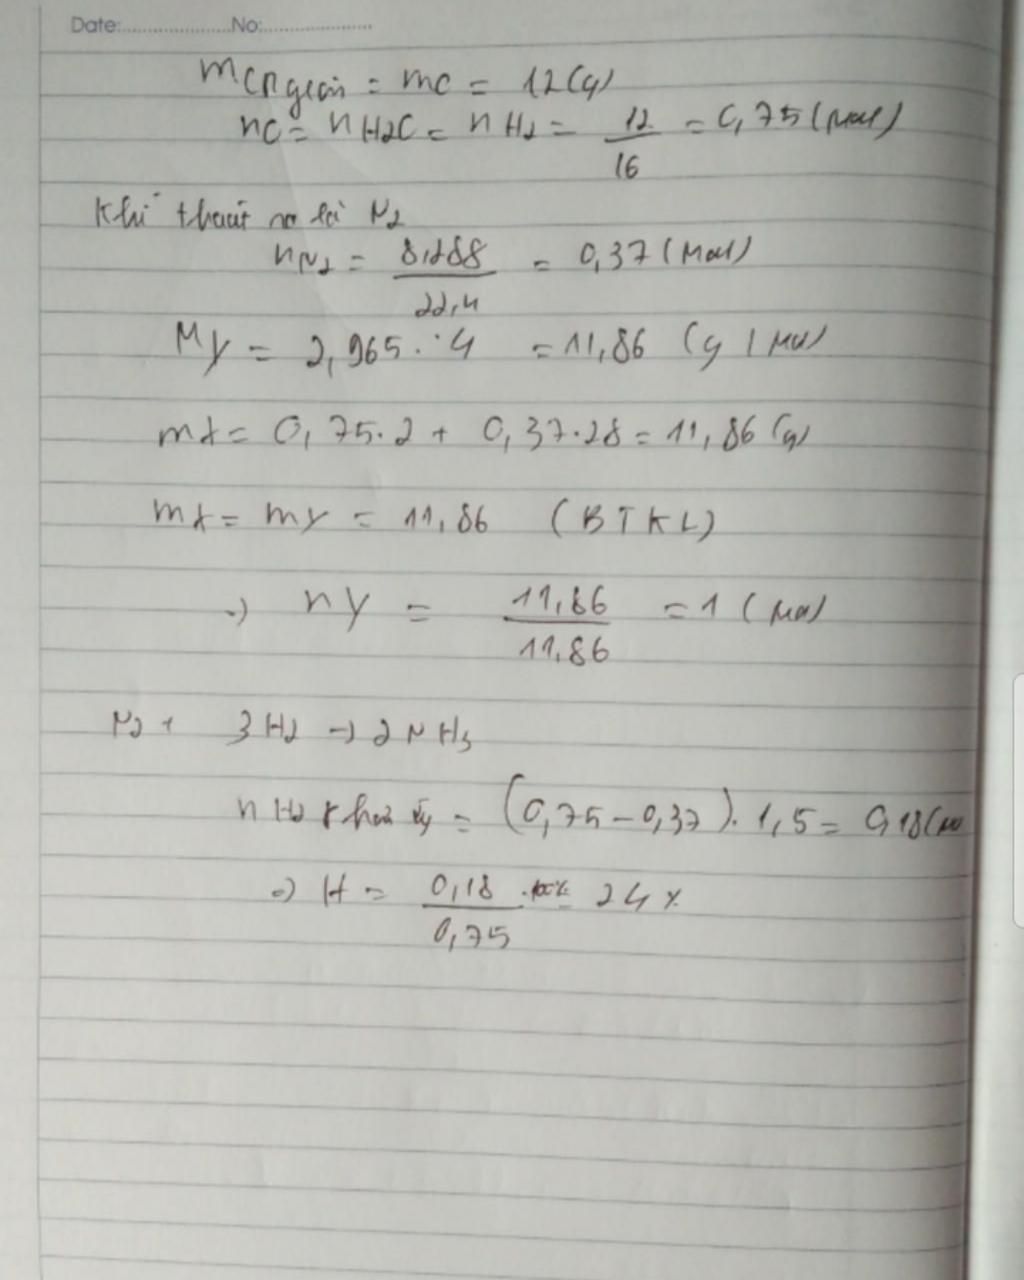 Date: No:
mCR giảm = mO = 12 (g)
nO = nH2O = nH2 = 12/16 = 0,75 (mol)
Khí thoát ra là N2
nN2 = 8,288/22,4 = 0,37 (mol)
My = 2,965 . 4 = 11,86 (g / mol)
mX = 0,75.2 + 0,37.28 = 11,86 (g)
mX = mY = 11,86 (BTKL)
=) nY = 11,86/11,86 = 1 (mol)
N2 + 3H2 -> 2NH3
nH2 = (0,75 - 0,37). 1,5 = 0,18 (mo
=) H = 0,18/0,75 .100% = 24%